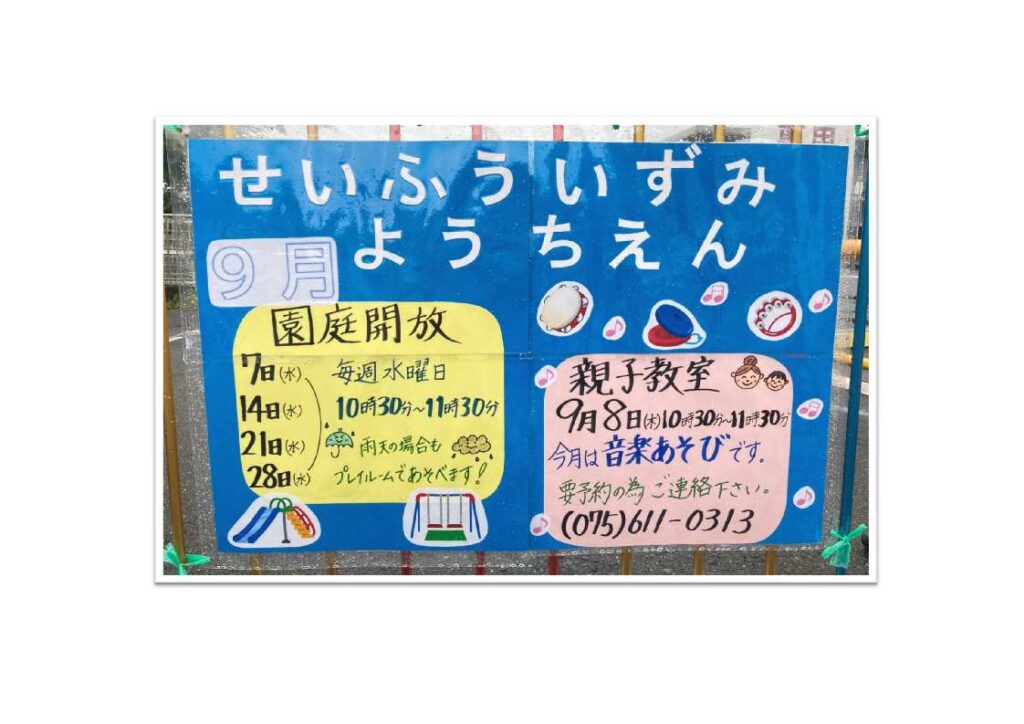 せいふういずみ
ようちえん
9月
園庭開放
7日(水)
14日(水)
21日(水)
28日(水)
毎週水曜日
10時30分~11時30分
雨天の場合も
プレイルームであそべます!
親子教室
9月8日(木)10時30分~11時30分
今月は音楽あそびです。
要予約の為ご連絡下さい。
(075)611-0313